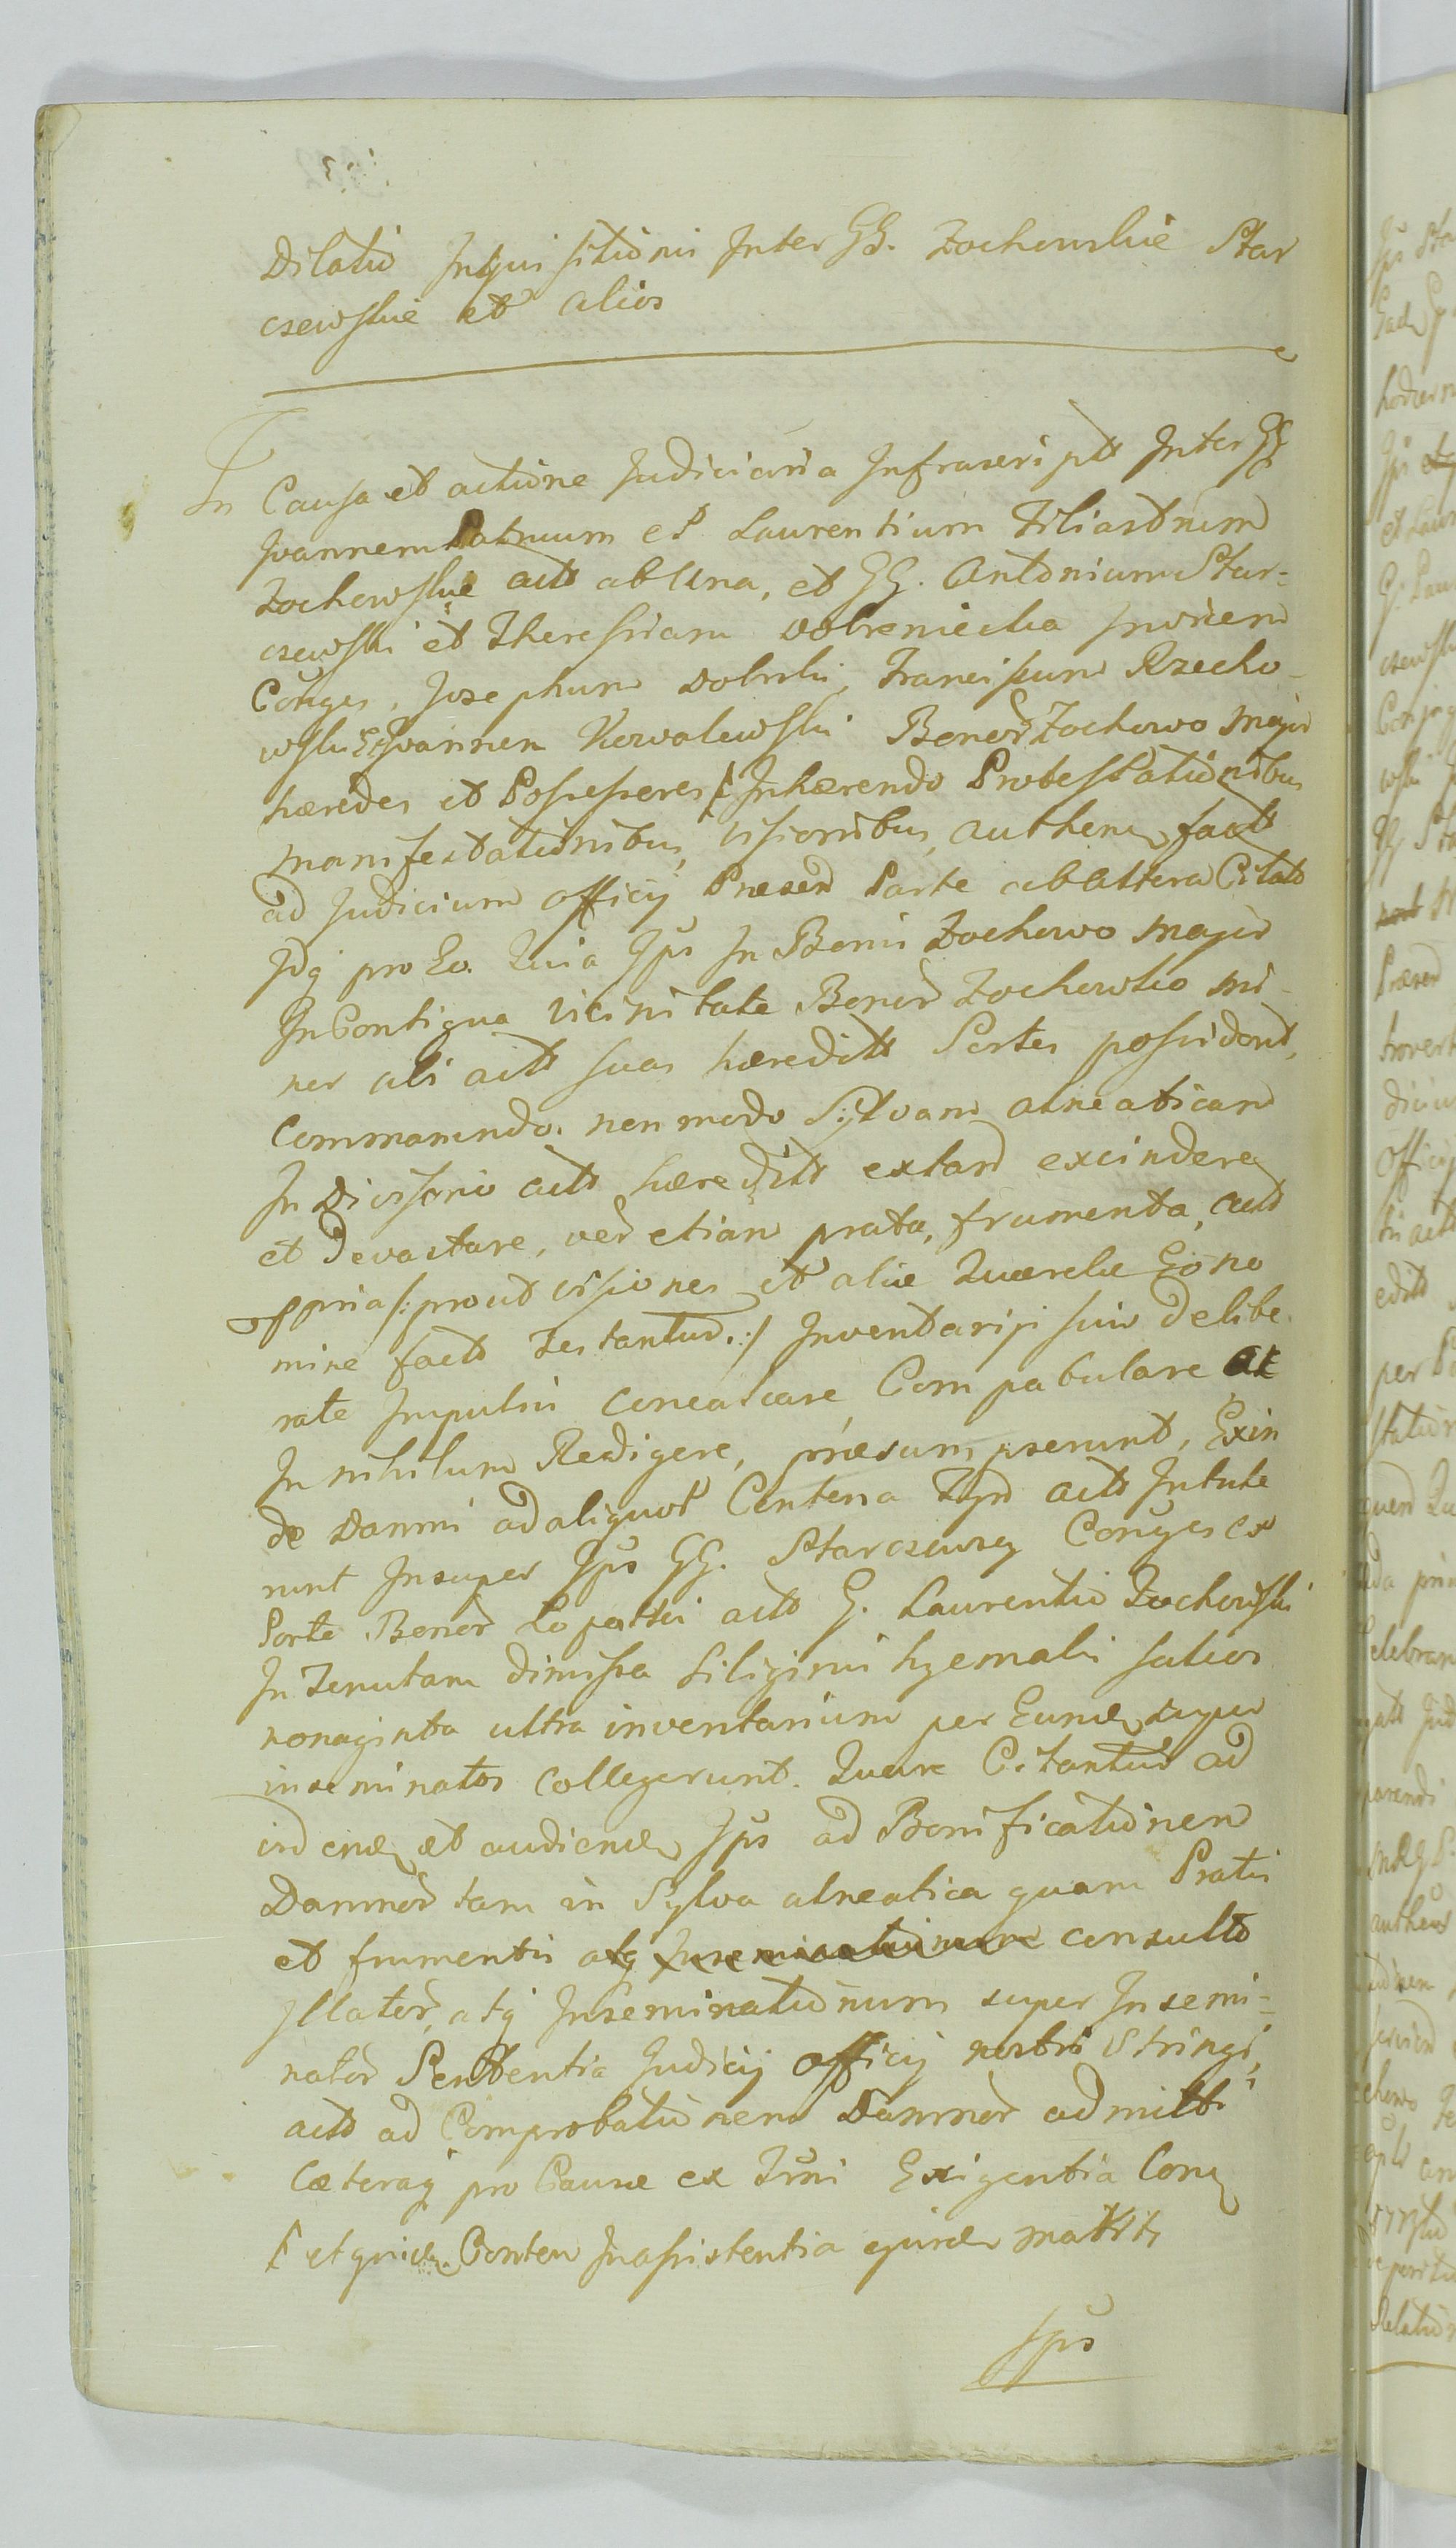 Dilatio Inquisitionis Inter GG. Zochowskie Star
czewskie et alios
In Causa et actione Judiciaria Infrascriptt Inter GG
Joannem Patruum et Laurentium Filiastrum
Zochowskie actt ab Una, et GG. Antonium Star=
czewski et Theresiam Dobreniecka invicem
Conges, Josephum Dolnski, Franciscum Rzecho-
wski et Joannem Kowalewski Bonor Zochowo Major
hæredes et Possessores Inhærendo Protestationibus
manifestationibus, visionibus, authen factt
ad Judicium officij Præsen Parte ab altera Citatt
Idq pro Eo. Quia Ips In Bonis Zochowo Major
In Contigua vicinitate Bonor Zochowko mi-
nor ubi actt suas hæreditt Sortes possident,
Commorando. non modo Sylvam alneaticam
In Divisorio actt hæreditt extan excindere
et Devastare, ver etiam prata, frumenta, actt
ppria /: prout visiones et aliæ Quærelæ Eo no
mine factt Testantur. :/ Inventarijs suis delibe.
rate Impulsis conculcare Compabulare ac
In nihilum Redigere, præsumpserunt, Exin
de Damni ad aliquot Centena Zyn actt Intule
runt Insuper Ips GG. Starczewscy Conges ex
Sorte Bonor Lopatki actt G. Laurentio Zochowski
In Tenutam dimissa Siliginis hyemalis sulcos
nonaginta ultra inventarium per Eund super
inseminatos collegerunt. Quare Citantur ad
viden et audiend Ips ad Bonificationem
Damnor tam in Sylva alneatica quam Pratis
et frumentis atq consulto
Illator, atq Inseminationum super Insemi=
nator Sententia Judicij officij nostri Stringi,
actt ad Comprobationem Damnor admitti
Cæteraq pro Causæ ex Trmi Exigentia
In assistentia ejusd maritt
Ips